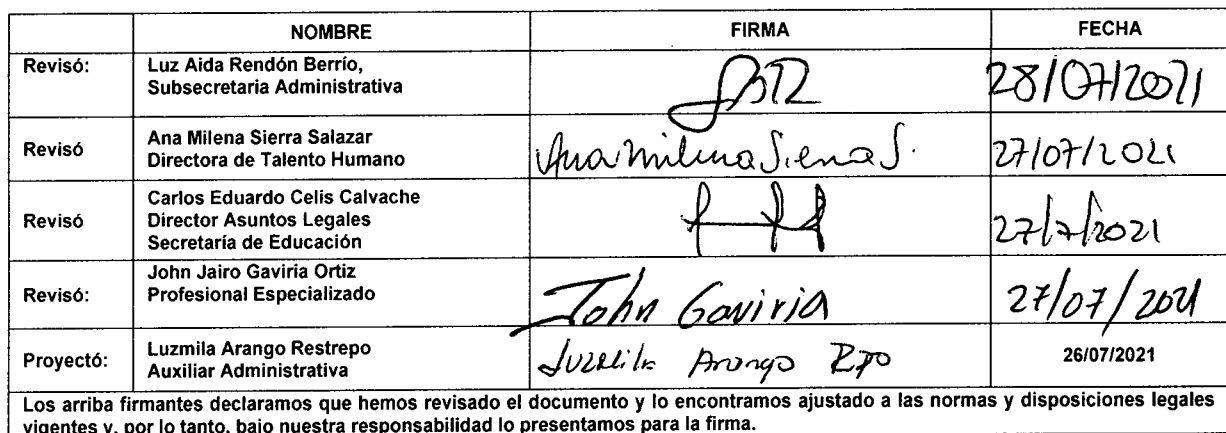 NOMBRE FIRMA FECHA
Revisó: Luz Aida Rendón Berrío,
Subsecretaria Administrativa 28/07/2021
Revisó Ana Milena Sierra Salazar
Directora de Talento Humano Ana milena Sierra S. 27/07/2021
Revisó Carlos Eduardo Celis Calvache
Director Asuntos Legales
Secretaría de Educación 27/7/2021
Revisó: John Jairo Gaviria Ortiz
Profesional Especializado John Gaviria 27/07/2021
Proyectó: Luzmila Arango Restrepo
Auxiliar Administrativa Luzmila Arango Rpo 26/07/2021
Los arriba firmantes declaramos que hemos revisado el documento y lo encontramos ajustado a las normas y disposiciones legales
vigentes y, por lo tanto, bajo nuestra responsabilidad lo presentamos para la firma.